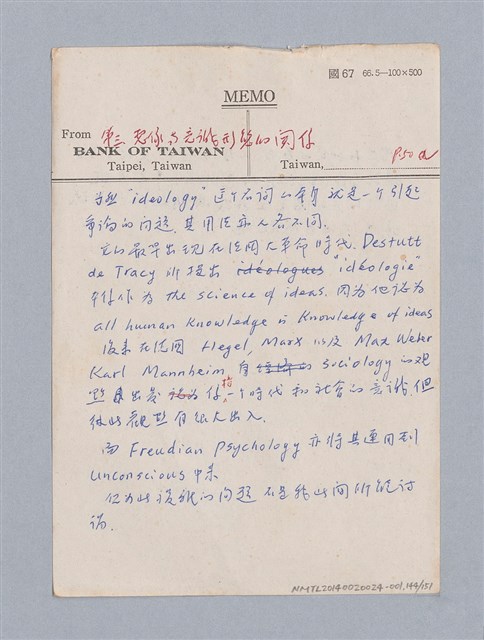 國67 66.5—100×500
MEMO
From 第三 想像與意識形態的關係
BANK OF TAIWAN
Taipei, Taiwan Taiwan, P50a
"ideology" 這个名词本身就是一个引起
爭論的问題, 其用法亦人各不同.
它的最早出現在法國大革命時代. Destutt
de Tracy 所提出 idéologues "idéologie"
作為 the science of ideas. 因为他认为
all human knowledge is knowledge of ideas
後来在法國 Hegel, Marx 以及 Max Weber
Karl Mannheim 有 sociology 的观
點 出發 係指一个時代和社會的意識, 但
彼此觀點有很大出入.
而 Freudian Psychology 亦将其運用到
unconscious 中来
仅为此該機的问題 不是我此間所能討
論.
NMTL20140020024-001.144/151